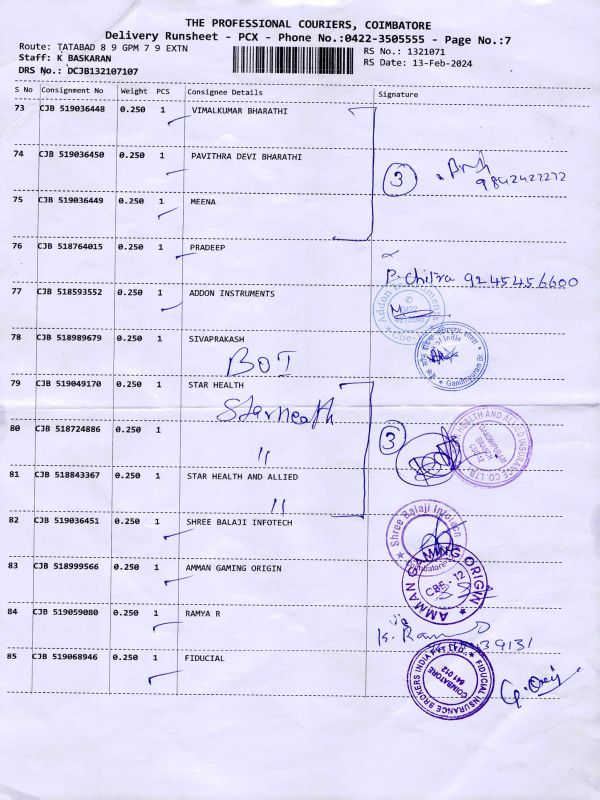 THE PROFESSIONAL COURIERS, COIMBATORE
Delivery Runsheet - PCX - Phone No.:0422-3505555 - Page No.:7
Route: TATABAD 8 9 GPM 7 9 EXTN
RS No.: 1321071
Staff: K BASKARAN
RS Date: 13-Feb-2024
DRS No.: DCJB132107107
S No Consignment No Weight PCS Consignee Details Signature
73 CJB 519036448 0.250 1 VIMALKUMAR BHARATHI
74 CJB 519036450 0.250 1 PAVITHRA DEVI BHARATHI
3 9842422272
75 CJB 519036449 0.250 1 MEENA
76 CJB 518764015 0.250 1 PRADEEP
P. Chitra 9245456600
77 CJB 518593552 0.250 1 ADDON INSTRUMENTS
Addon Instruments
78 CJB 518989679 0.250 1 SIVAPRAKASH
BOI
Gandhipuram
79 CJB 519049170 0.250 1 STAR HEALTH
Star Health
80 CJB 518724886 0.250 1
"
3
HEALTH AND ALLIED INSURANCE CO. LTD.
81 CJB 518843367 0.250 1 STAR HEALTH AND ALLIED
"
82 CJB 519036451 0.250 1 SHREE BALAJI INFOTECH
Shree Balaji Infotech
Coimbatore
83 CJB 518999566 0.250 1 AMMAN GAMING ORIGIN
AMMAN GAMING ORIGIN
CBE - 12
84 CJB 519059080 0.250 1 RAMYA R
39131
85 CJB 519068946 0.250 1 FIDUCIAL
FIDUCIAL INSURANCE BROKERS INDIA PVT LTD.
COIMBATORE
641 012